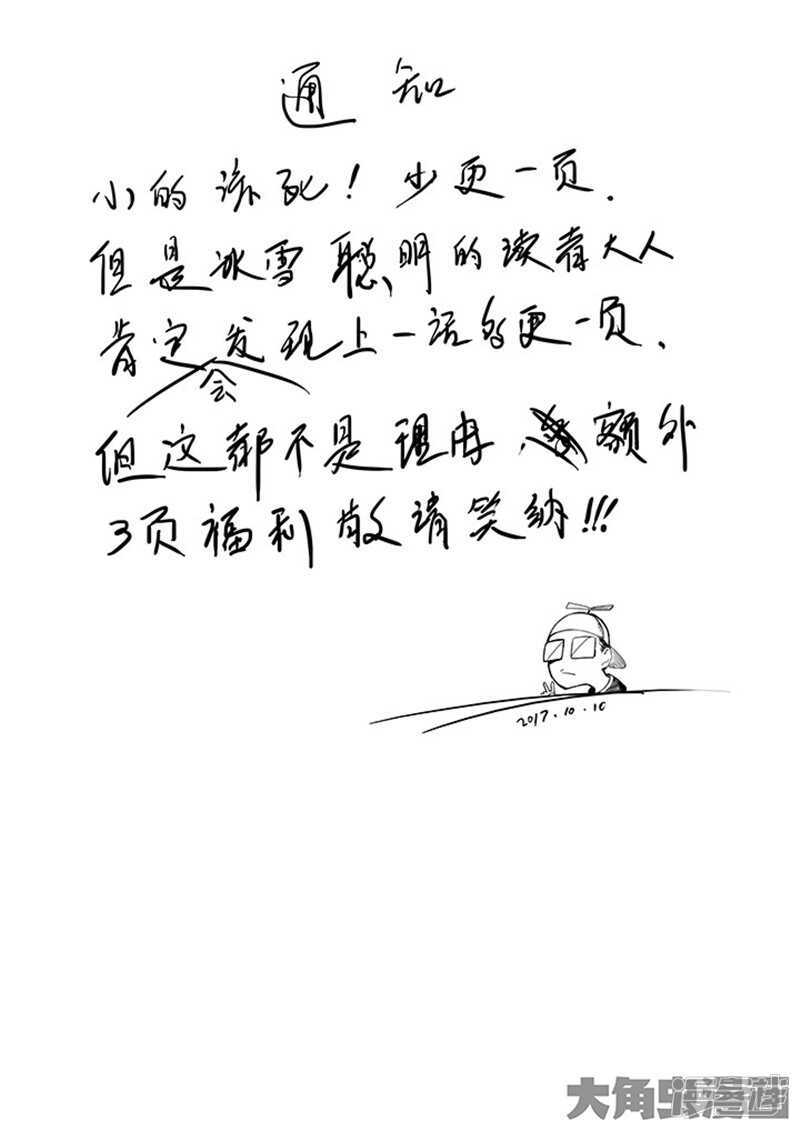 通知
小的该死！少更一页．
但是冰雪聪明的读者大人
肯定会发现上一话多更一页．
但这都不是理由，额外
3页福利敬请笑纳！！！
2017.10.10
大角虫漫画